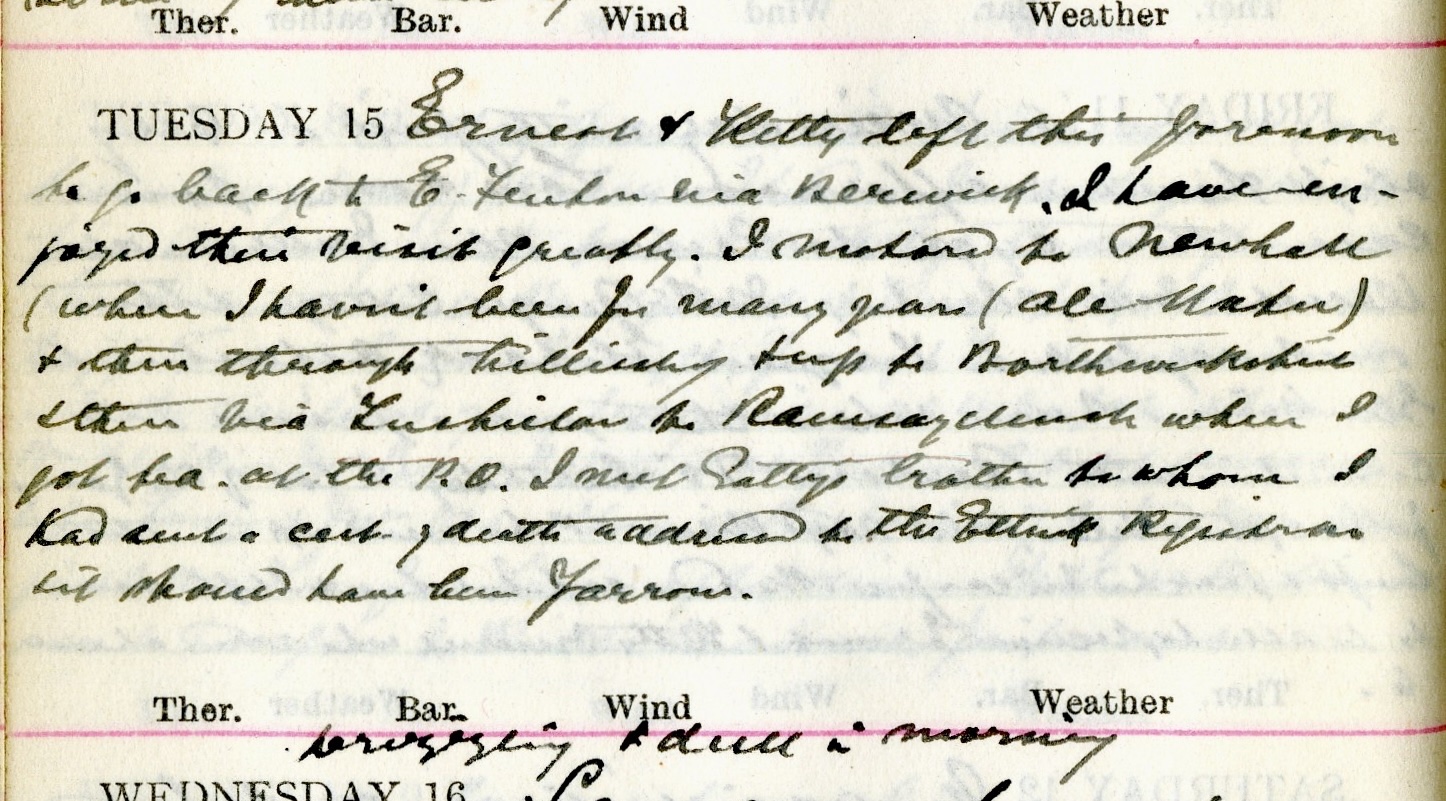 Ther. Bar. Wind Weather
TUESDAY 15 Ernest & Hetty left this forenoon
to go back to E. Fenton via Berwick. I have en-
joyed their visit greatly. I motored to Newhall
(where I havn't been for many years (Ale Water)
& then through & up to Borthwickshiels
& then via to Ramsaycleuch where I
got tea. at the P.O. I met brother to whom I
had sent a cert. of death addressed to the Ettrick Registrar
& it should have been Yarrow.
Ther. Bar. Wind Weather
& dull in morning
WEDNESDAY 16